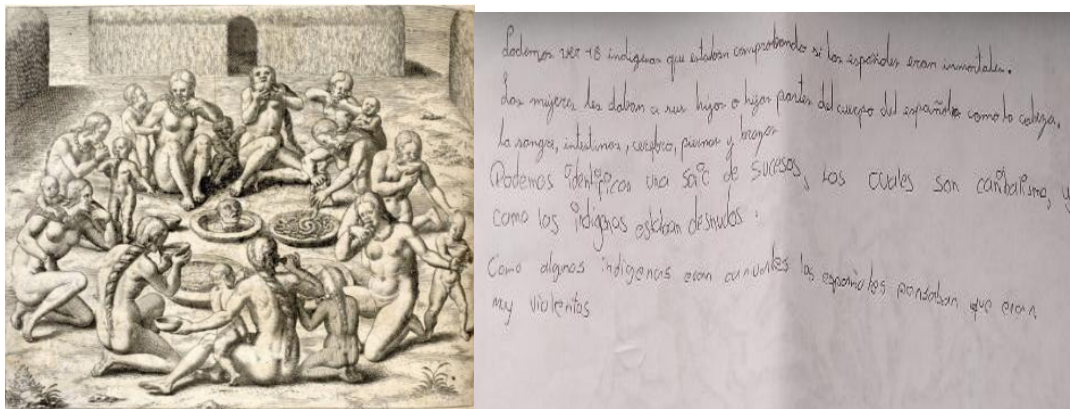 Podemos ver 18 indigenas que estaban comprobando si los españoles eran inmortales.
Las mujeres les daban a sus hijos o hijas partes del cuerpo del español como la cabeza,
la sangre, intestinos, cerebro, piernas y brazos
Podemos identificar una serie de sucesos, los cuales son canibalismo, y
como los indigenas estaban desnudos.
Como algunos indigenas eran canibales los españoles pensaban que eran
muy violentos